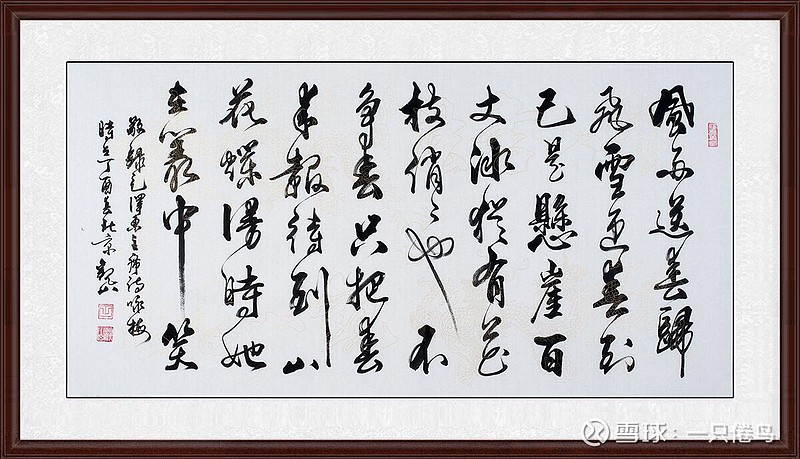 風雨送春歸
飛雪迎春到
已是懸崖百
丈冰猶有花
枝俏〻也不
争春只把春
来報待到山
花爛漫時她
在叢中笑
敬録毛澤東主席詩詠梅
時在丁酉春北京
雪球：一只倦鸟